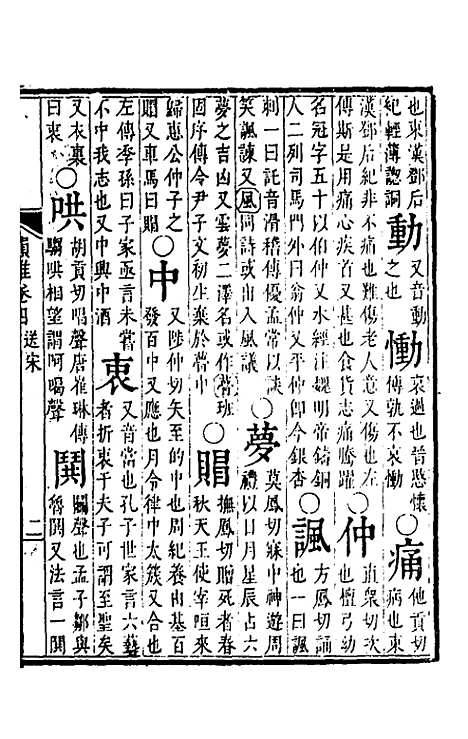 也東漢鄧后
紀輕薄謥詷
動
又音動
之也
慟
哀過也音慇懷
傳孰不哀慟
○
痛
他貢切
病也東
漢鄧后紀非不痛也難傷老人意又傷也左
傳斯是用痛心疾首又甚也食貨志痛騰躍
○
仲
直衆切次
也檀弓幼
名冠字五十以伯仲又水經注魏明帝鑄銅
人二列司馬門外曰翁仲又平仲卽今銀杏
○
諷
方鳳切誦
也一曰譏
刺一曰託音滑稽傳優孟常以談
笑諷諫又風同詩或出入風議
○
夢
莫鳳切寐中神遊周
禮以日月星辰占六
夢之吉凶又雲夢二澤名或作瞢班
固序傳令尹子文初生棄於瞢中
○
賵
撫鳳切贈死者春
秋天王使宰咺來
歸惠公仲子之
賵又車馬曰賵
○
中
又陟仲切矢至的中也周紀養由基百
發百中又應也月令律中太簇又合也
左傳季孫曰子家亟言未嘗
不中我志也又中興中酒
衷
又音當也孔子世家言六藝
者折衷于夫子可謂至聖矣
又衣裏
曰衷
○
哄
胡貢切唱聲唐崔琳傳
騶哄相望謂呵喝聲
鬨
鬭聲也孟子鄒與
魯鬨又法言一鬨
韻雅卷四 送宋
二